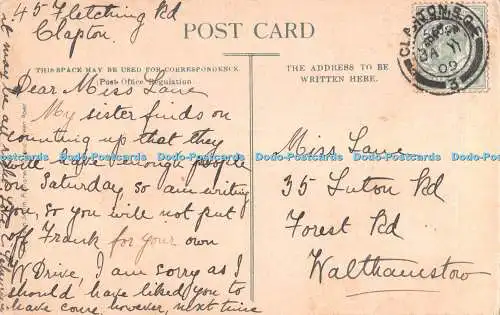 45 Fletching Rd
Clapton
POST CARD
THIS SPACE MAY BE USED FOR CORRESPONDENCE.
(Post Office Regulation.)
THE ADDRESS TO BE
WRITTEN HERE.
Dear Miss Lane
My sister finds on
counting up that they
will have enough people
Saturday, so am writing
you, so you will not put
off Frank for your own
W Drive, I am sorry as I
should have liked you to
have come, however, next time
it may be a
Miss Lane
35 Luton Rd
Forest Rd
Walthamstow
CLAPTON S.O.
11
09
3
Dodo-Postcards Dodo-Postcards Dodo-Postcards Dodo-Postcards Dodo-Postcards Dodo-Postcards